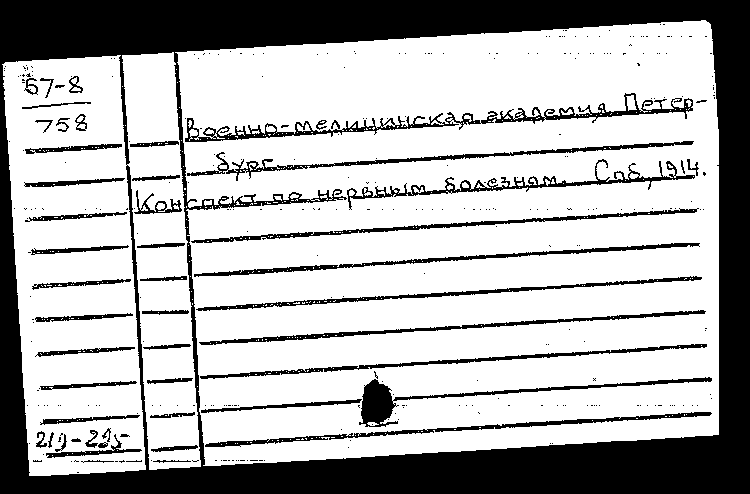 57-8
758
Военно-медицинская академия. Петер-
бург.
Конспект по нервным болезням. Спб, 1914.
219-295